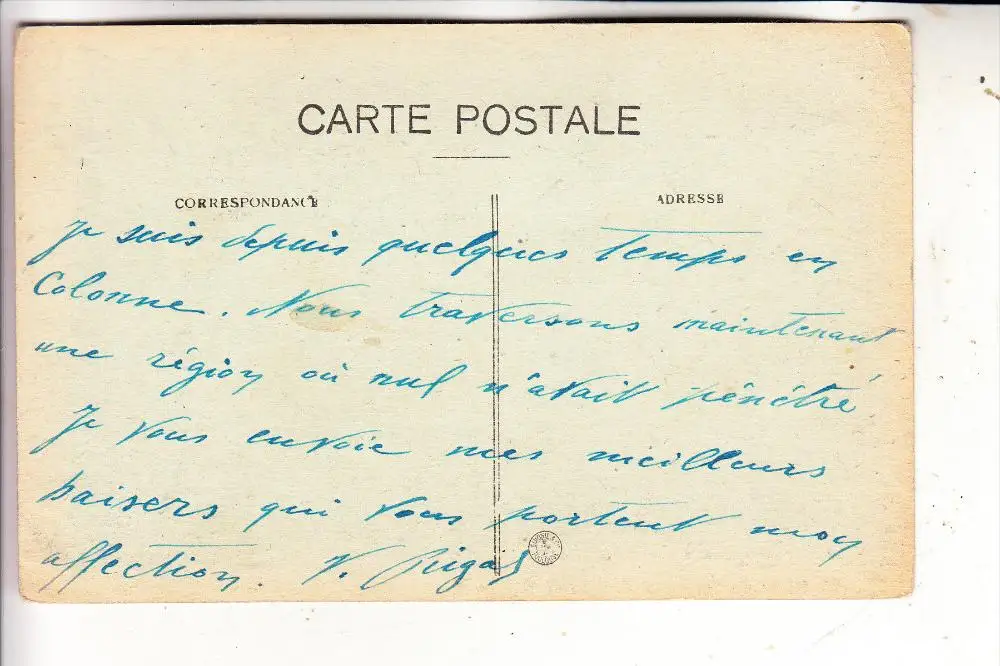 CARTE POSTALE
CORRESPONDANCE
ADRESSE
Je suis depuis quelques temps en
Colonne. Nous traversons maintenant
une région où nul n'avait pénétré.
Je vous envoie mes meilleurs
baisers qui vous portent mon
affection. V.